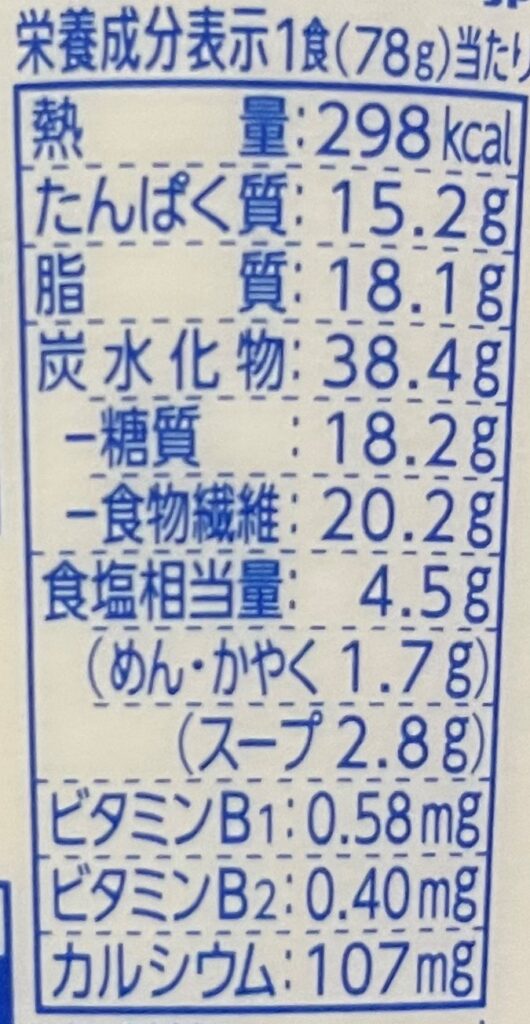 栄養成分表示1食(78g)当たり
熱量:298kcal
たんぱく質:15.2g
脂質:18.1g
炭水化物:38.4g
−糖質:18.2g
−食物繊維:20.2g
食塩相当量:4.5g
(めん・かやく 1.7g)
(スープ 2.8g)
ビタミンB1:0.58mg
ビタミンB2:0.40mg
カルシウム:107mg